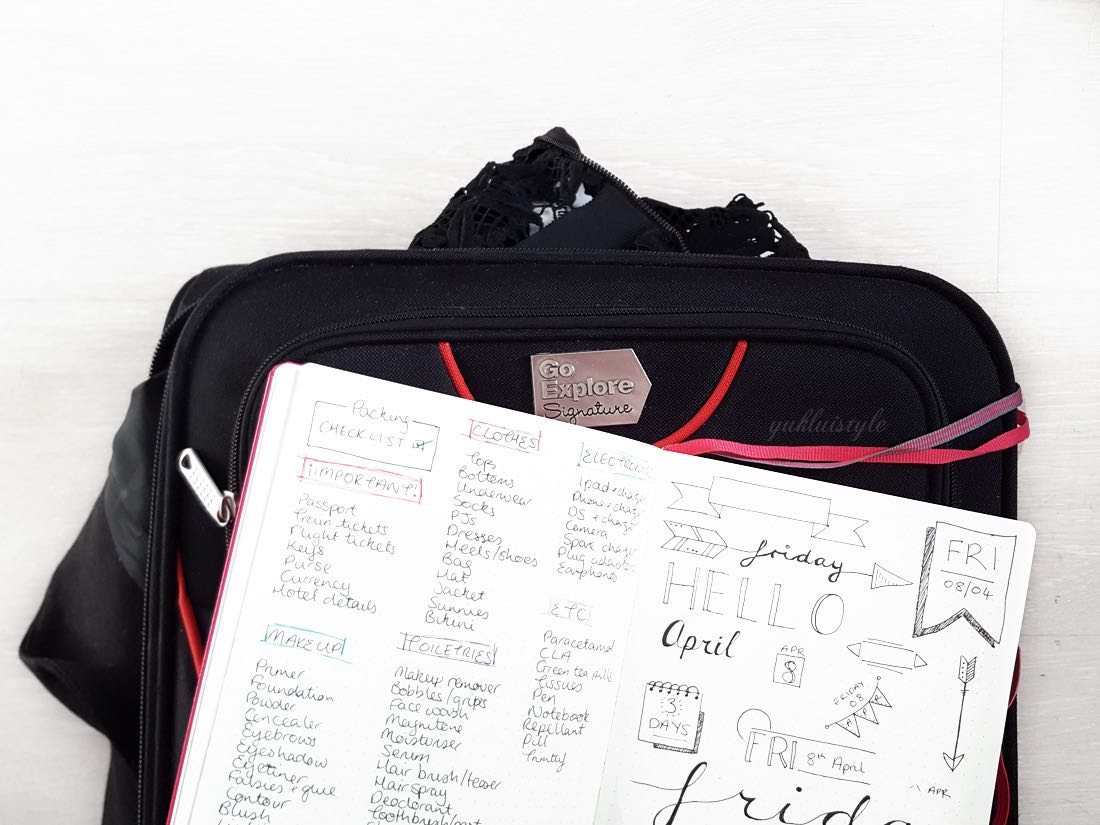 Go
Explore
Signature
yukluistyle
Packing
CHECKLIST
!IMPORTANT!
Passport
Train tickets
Flight tickets
Keys
Purse
Currency
Hotel details
MAKEUP
Primer
Foundation
Powder
Concealer
Eyebrows
Eyeshadow
Eyeliner
Falsies + glue
Contour
Blush
CLOTHES
Tops
Bottoms
Underwear
Socks
PJs
Dresses
Heels/shoes
Bag
Hat
Jacket
Sunnies
Bikini
TOILETRIES
Makeup remover
Bobbles/grips
Face wash
Magnitone
Moisturiser
Serum
Hair brush/teaser
Hairspray
Deodorant
ELECTRONI
Ipad + charg
Phone + charg
DS + charg
Camera
Spare charg
Plug adaptor
Earphones
ETC
Paracetamol
CLA
Green tea pills
Tissues
Pen
Notebook
Repellant
Pill
friday
FRI
08/04
HELLO
April
APR
8
3
DAYS
FRIDAY
08
APR
FRI 8th April
APR
frida